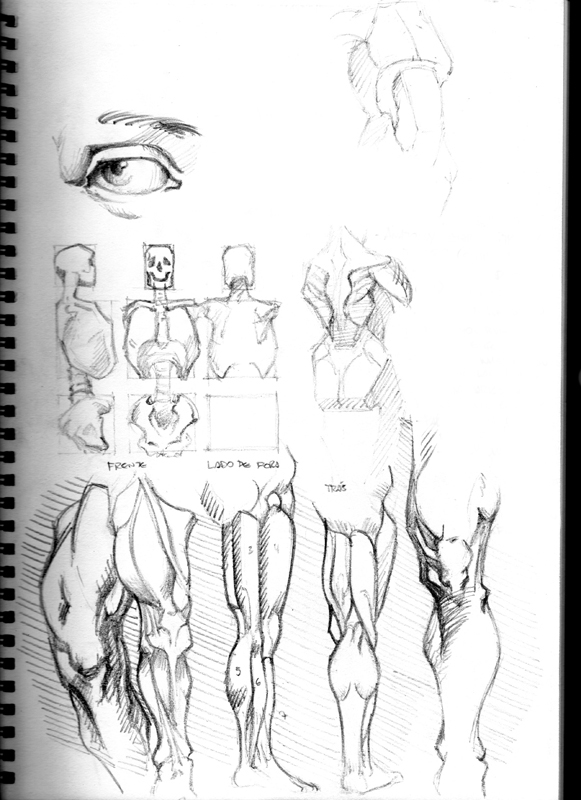 FRENTE
LADO DE FORA
TRÁS
3
5
6